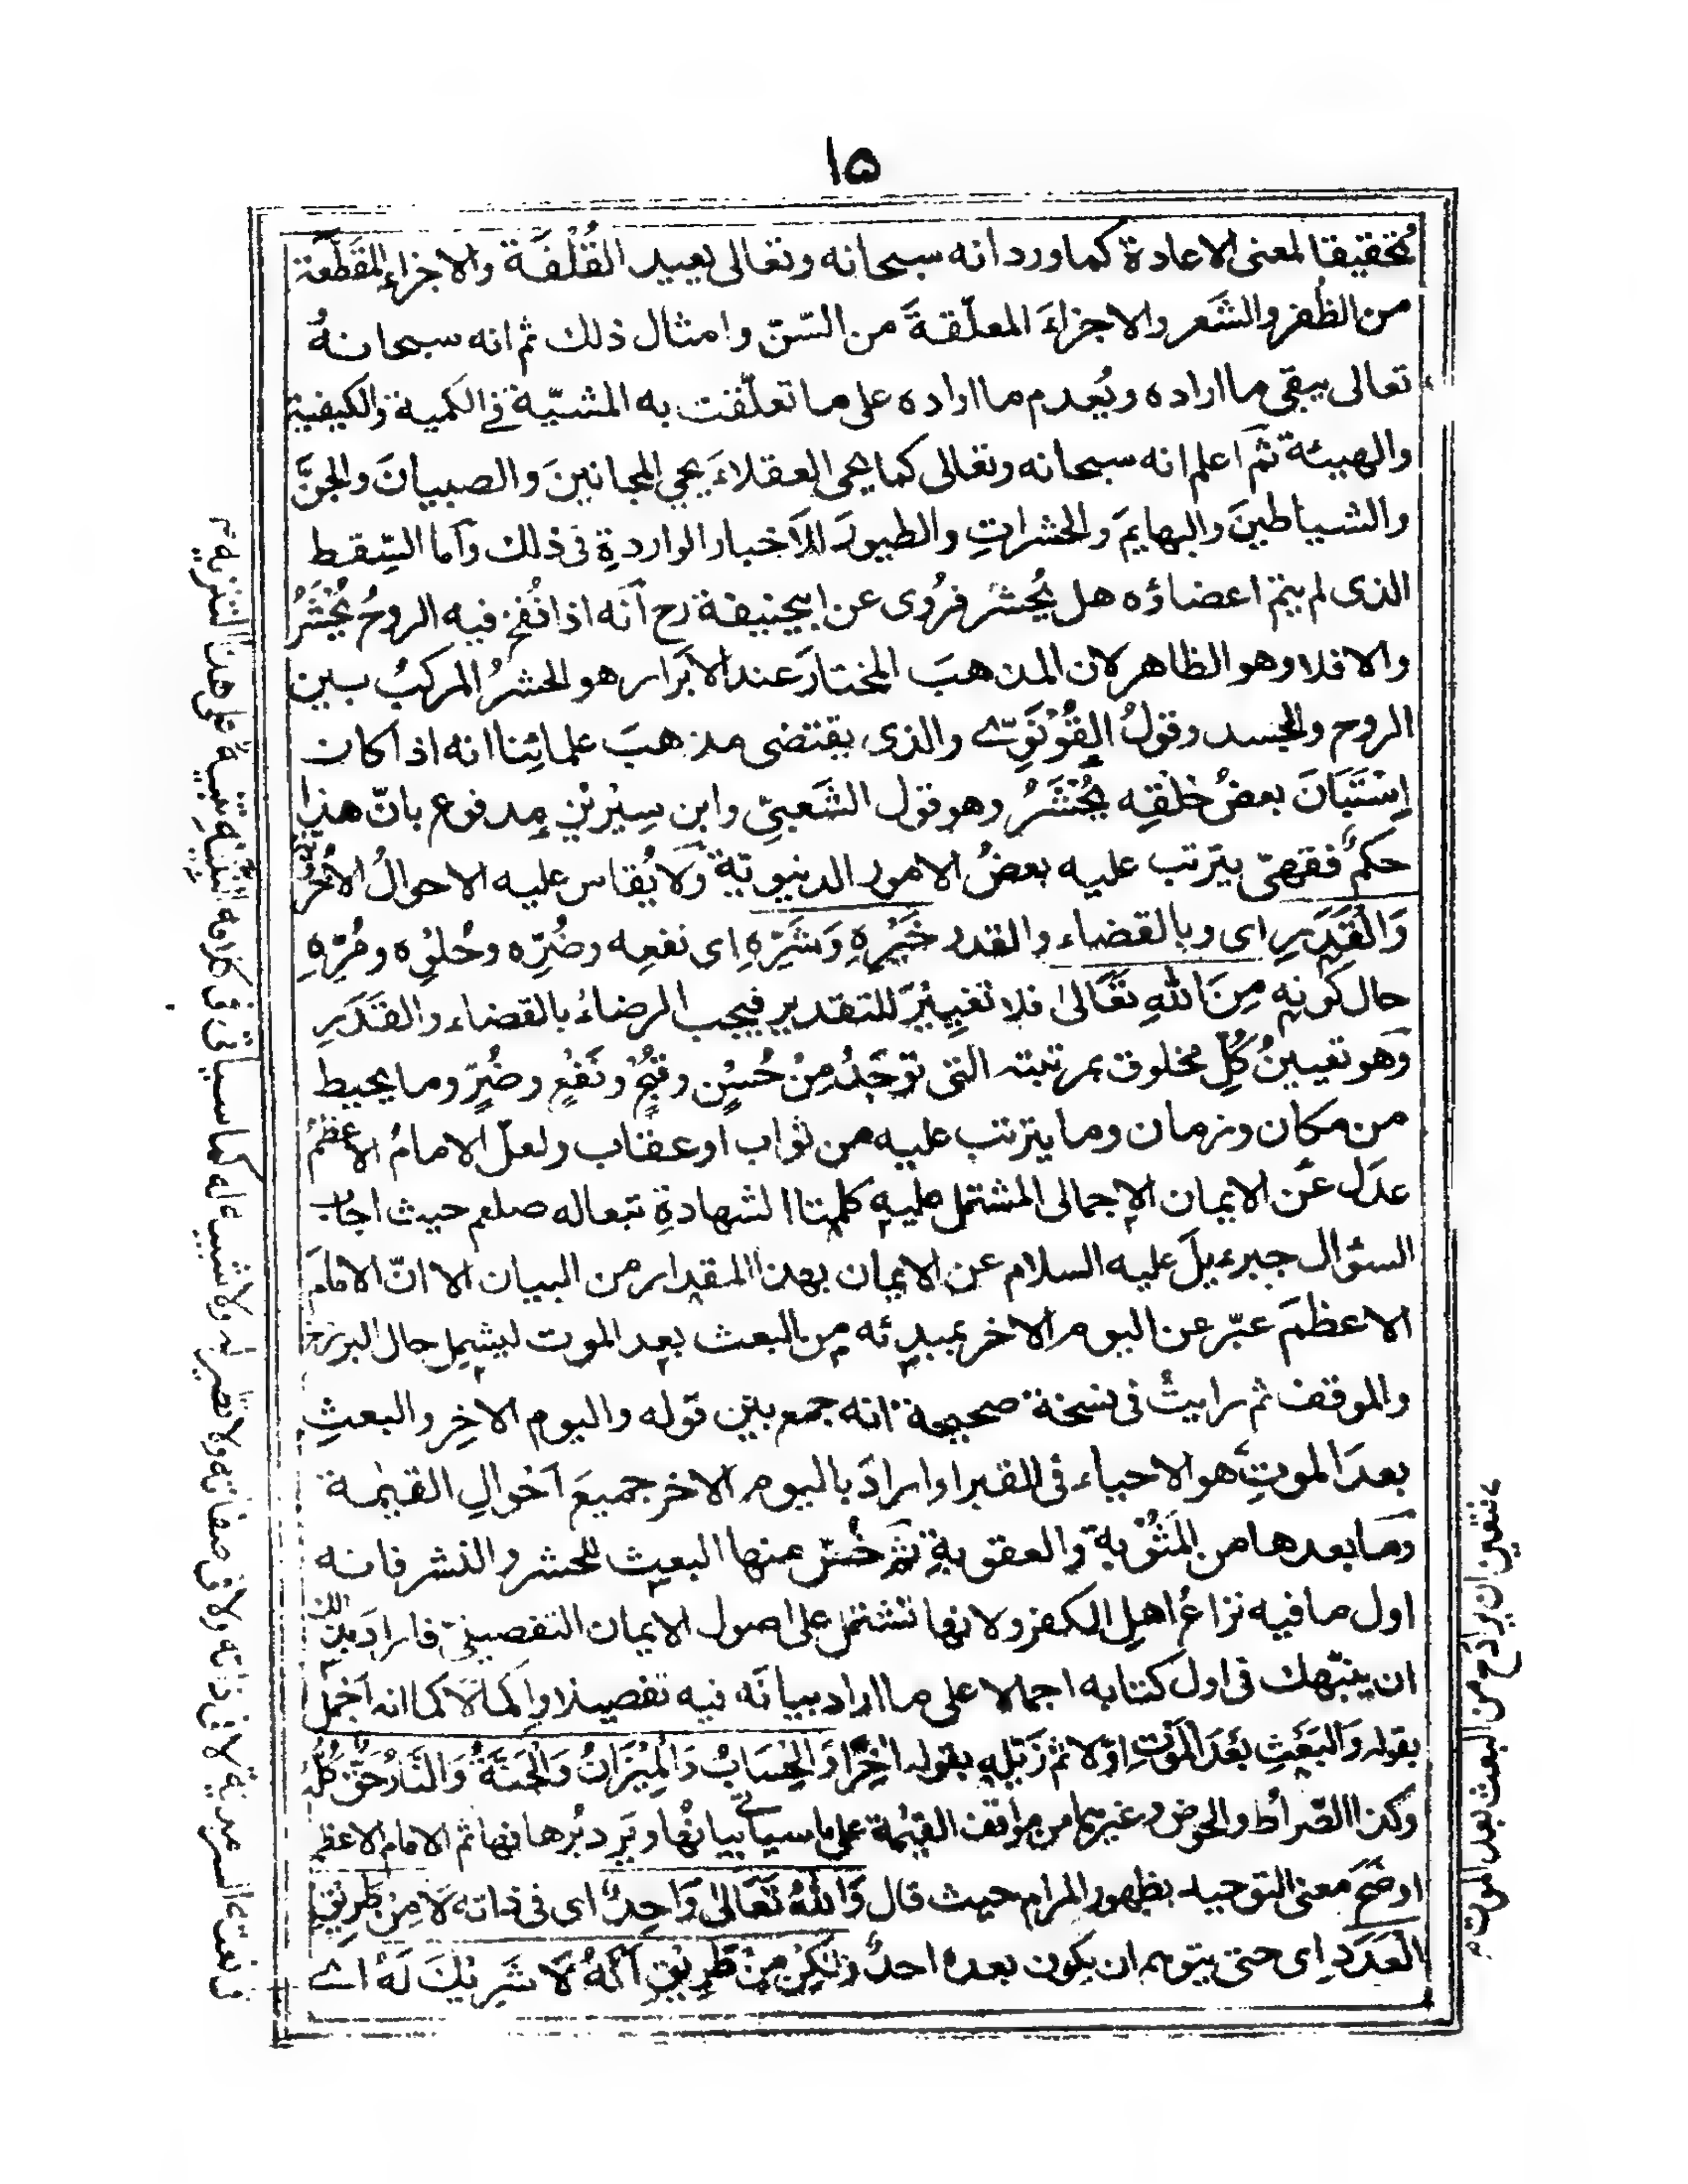 ١٥
تحقيقا لمعنى الاعادة كما ورد انه سبحانه وتعالى يعيد القُلْفَة والاجزاء المقَطَّعة
من الظُفر والشَعر والاجزاءَ المعلّقةَ من السّنّ وامثال ذلك ثم انه سبحانهُ
تعالى يبقي ما اراده ويُعدم ما اراده على ما تعلّقت به المشيّة في الكمية والكيفية
والهيئة ثم اعلم انه سبحانه وتعالى كما يحيى العقلاءَ يحيي المجانينَ والصبيانَ والجنَّ
والشياطينَ والبهايمَ والحشراتِ والطيورَ للاخبار الواردةِ فى ذلك واَما السِّقط
الذى لم يتم اعضاؤه هل يُحشر فرُوى عن ابيحنيفة رح اَنّه اذا نُفخ فيه الروحُ يُحْشَرُ
والا فلا وهو الظاهر لان المذهبَ المختارَ عند الابرار هو الحشرُ المركبُ بين
الروح والجسد وقولُ القُوْنَوِيّ والذى يقتضى مذهبَ علمائِنا انه اذا كان
اِسْتَبَانَ بعضُ خلقِه يُحْشَرُ وهو قول الشَعبيّ وابن سِيْرِيْن مدفوع بانّ هذا
حكمٌ فقهىّ يترتب عليه بعضُ الامور الدنيوية وَلا يُقاس عليه الاحوالُ الاُخْرَوية
وَالْقَدَرِ اى وبالقضاء والقدر خَيْرِهِ وَشَرِّهِ اى نفعِه وضُرِّه وحُلوِه ومُرِّهِ
حال كَونِه مِنَ اللّٰهِ تَعَالٰى فلا تغيِيْرَ للتقدير فيجب الرضاءُ بالقضاء والقَدَرِ
وَهو تعيينُ كُلِّ مخلوق بمرتبته التى تُوْجَدُ مِنْ حُسْنٍ وقُبْحٍ ونَفْعٍ وضُرٍّ وما يحيط
من مكان وزمان وما يترتب عليه من ثواب او عقاب ولعلّ الامامُ الاعظمُ
عدَل عَن الايمان الاجمالى المشتمل عليه كلمتا الشهادةِ تبعا له صلعم حيث اجاب
السؤال جبرءيلَ عليه السلام عن الايمان بهذا المقدار من البيان الا انّ الامامَ
الاعظمَ عبّر عن اليوم الاخر بمبدئه من البعث بعد الموت ليشمل حال البرزخ
والموقف ثم رايتُ فى نسخة صحيحة انه جمع بين قوله واليوم الاخِر والبعثِ
بعدَ الموتِ هو الاحياء فى القبر او ارادَ باليوم الاخر جميعَ اَحْوالِ القيٰمة
وَما بعدها من المَثُوْبة والعقوبةِ ثمّ خُصّ منها البعث للحشر والنشر فانه
اول ما فيه نزاعُ اهلِ الكفر ولانها تشتمل على اصول الايمان التفصيلىّ فاراد بذلك
ان ينبّهك فى اول كتابه اجمالا على ما اراد بيانَه فيه تفصيلا واِكمالًا كما انه اَجْمَل
بقوله وَالبَعْثِ بَعْدَ الْمَوْتِ اوّلا ثم ذَيّله بقوله اٰخِرًا وَالْحِسَابُ وَالْمِيْزَانُ وَالْجَنَّةُ وَالنَّارُ حَقٌّ كُلُّهُ
وكذا الصّراط والحوض وغيرهما من مواقف القيٰمة على ما سياتي بيانُها ويَرِد بُرهانها ثم الامام الاعظم
اوضَحَ معنى التوحيد بظهور المرام حيث قال وَاللّٰهُ تَعَالٰى وَاحِدٌ اى فى ذاته لَا مِنْ طَرِيْقِ
العَدَدِ اى حتى يتوهم ان يكون بعده احدٌ وَلٰكِنْ مِنْ طَرِيْقِ اَنَّهُ لَا شَرِيْكَ لَهُ اے
يتعين ان يراد ح من البعث بعد الموت